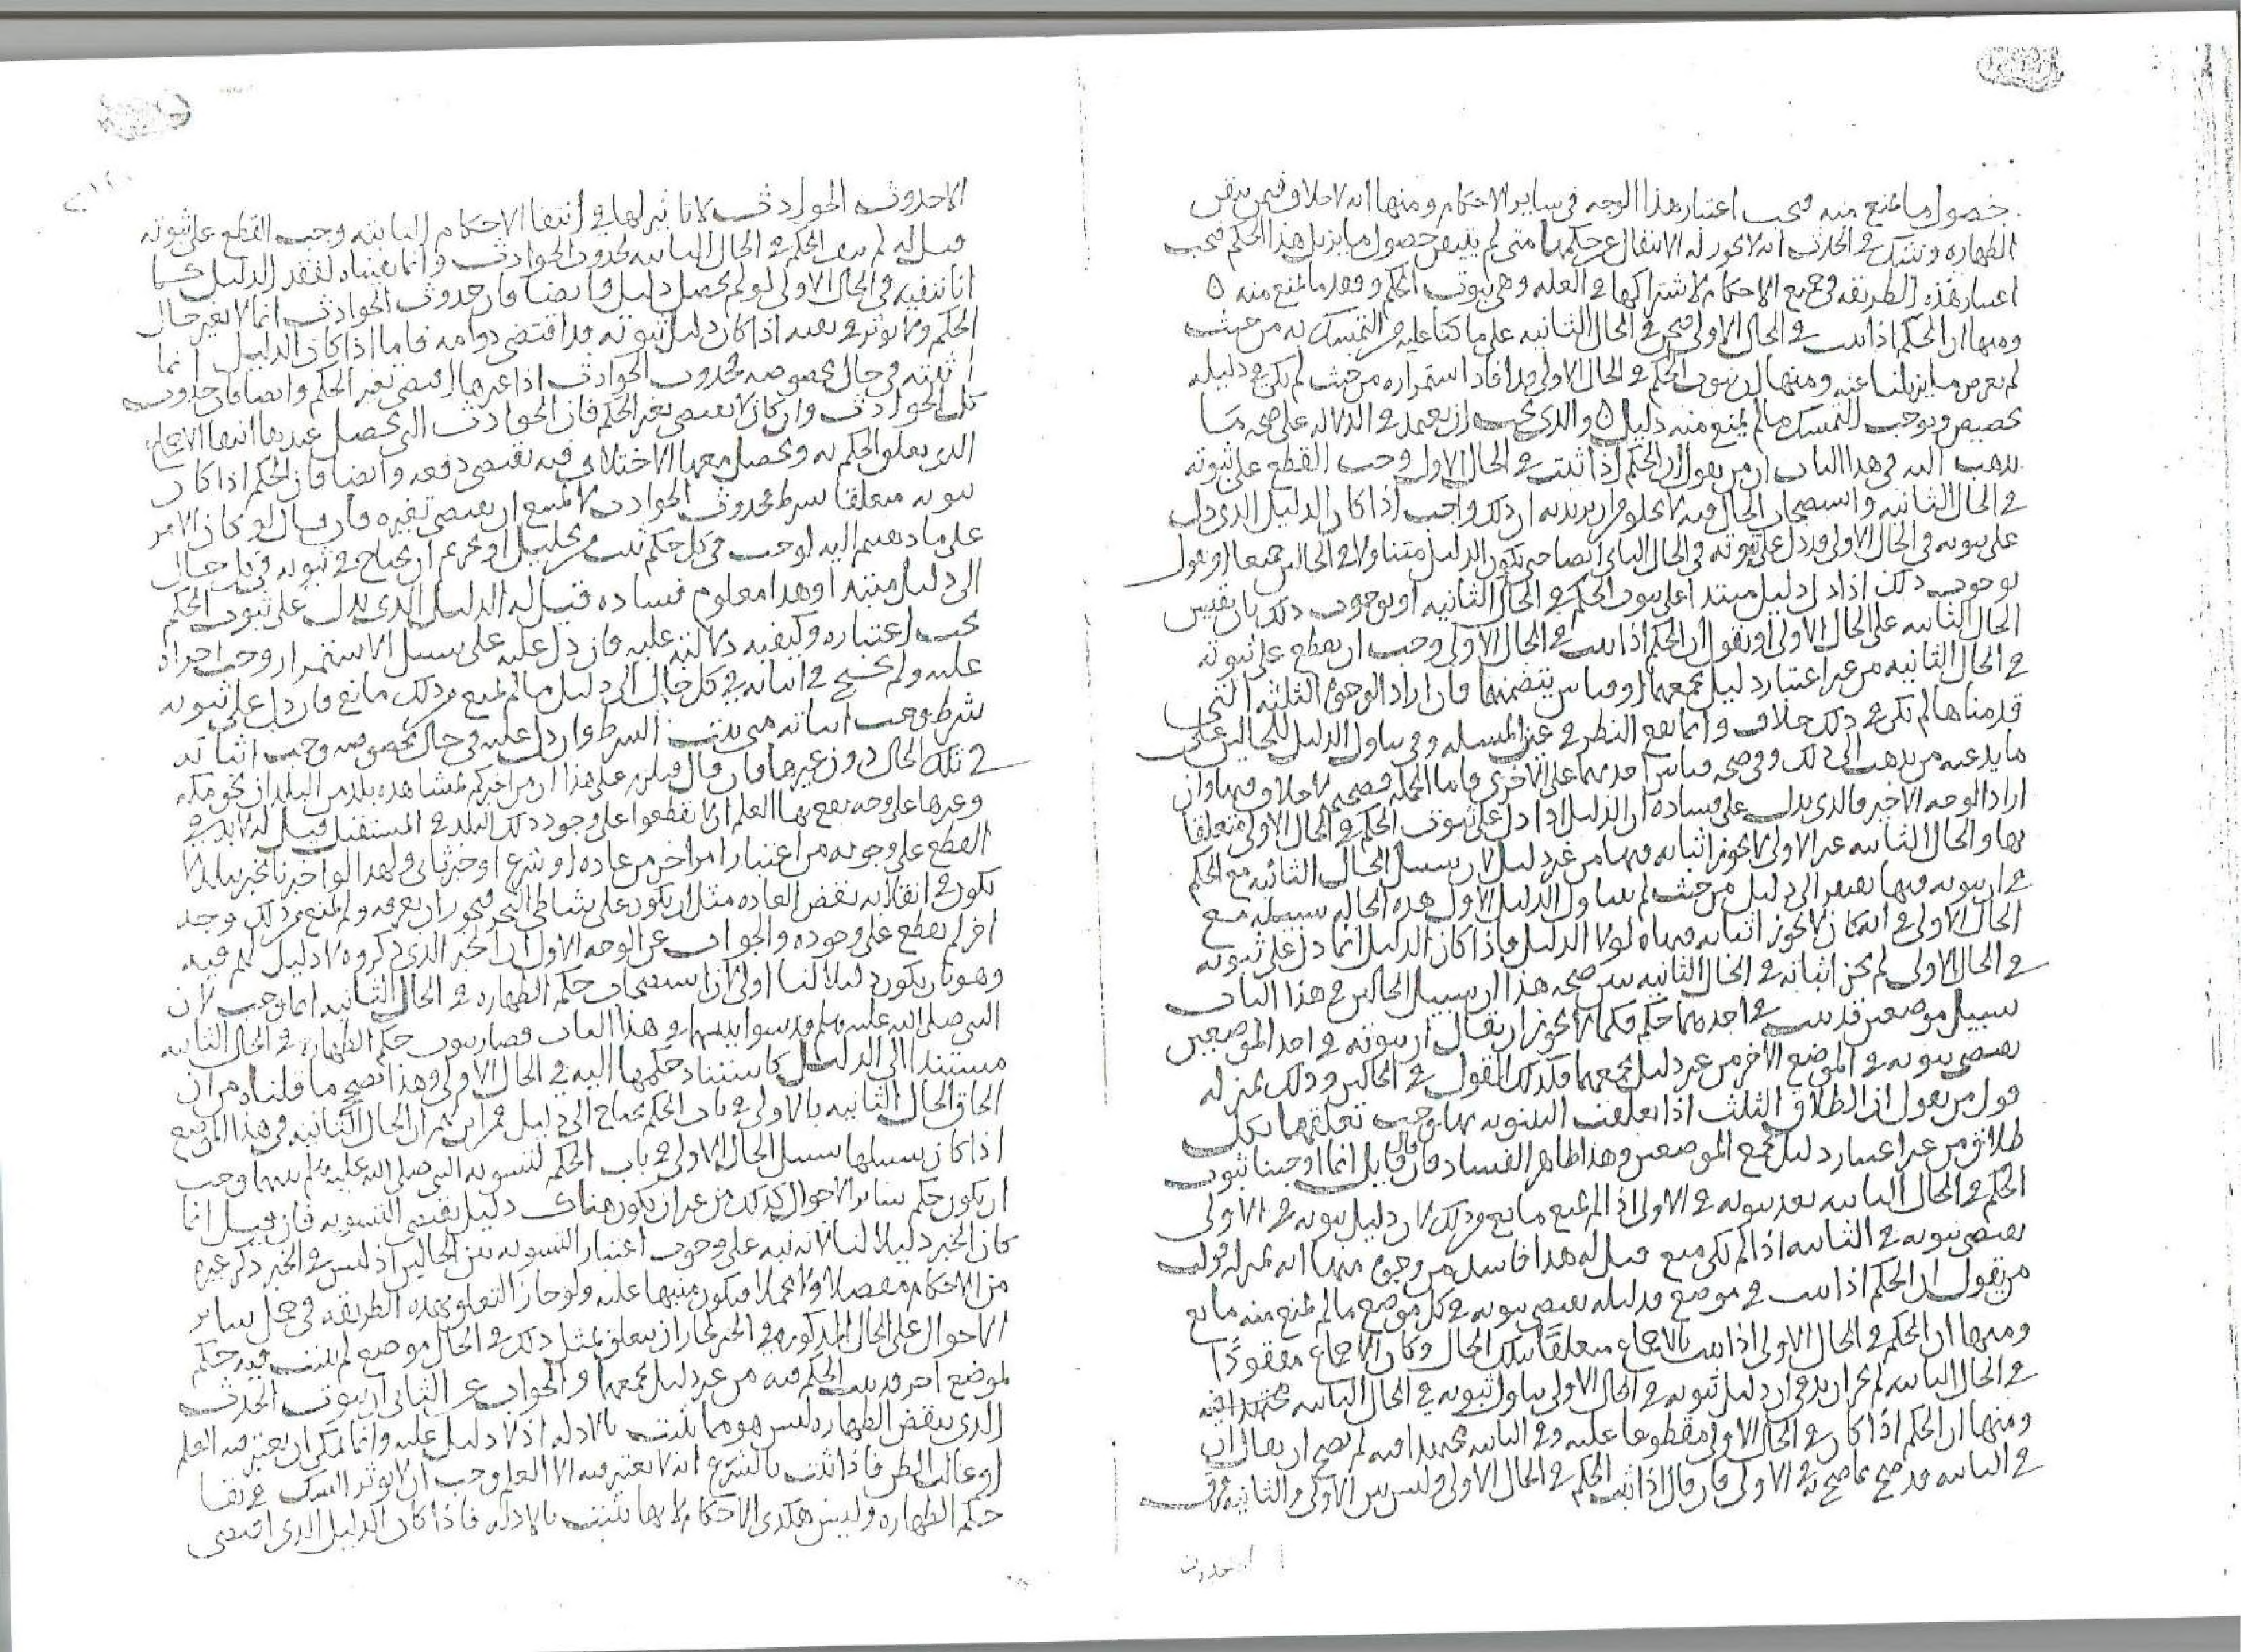 حصول ما يمنع منه فيجب اعتبار هذا الوجه في ساير الاحكام ومنها انه لا خلاف فيمن يتيقن
الطهاره وشك في الحدث انه لا يجوز له الانتقال عن حكمها متى لم يتيقن حصول ما يزيل هذا الحكم فيجب
اعتبار هذه الطريقه في جميع الاحكام لاشتراكها في العله وهي ثبوت الحكم وفقد ما يمنع منه ٥
ومنها ان الحكم اذا ثبت في الحال الاولى فنحن في الحال الثانيه على ما كنا عليه من التمسك به من حيث
لم يعرض ما يزيلنا عنه ومنها ان ثبوت الحكم في الحال الاولى قد افاد استمراره من حيث لم يكن في دليله
تخصيص ويوجب التمسك ما لم يمنع منه دليل ٥ والذي يجب ان يعتمد في الدلاله على صحه ما
نذهب اليه في هذا الباب ان من يقول ان الحكم اذا ثبت في الحال الاول وجب القطع على ثبوته
في الحال الثانيه واستصحاب الحال فيه لا يخلو من ان يريد به ان ذلك واجب اذا كان الدليل الذي دل
على ثبوته في الحال الاولى قد دل على ثبوته في الحال الثاني ايضا حتى يكون الدليل متناولا في الحالين جميعا او يقول
بوجوب ذلك اذا دل دليل مبتدا على ثبوت الحكم في الحال الثانيه او بوجوب ذلك بان يقيس
الحال الثانيه على الحال الاولى او يقول ان الحكم اذا ثبت في الحال الاولى وجب ان يقطع على ثبوته
في الحال الثانيه من غير اعتبار دليل يجمعهما او قياس يتضمنهما فان اراد الوجوه الثلثه التي
قدمناها لم يكن في ذلك خلاف وانما يقع النظر في عين المسله وفي تناول الدليل للحالين على
ما يدعيه من يذهب الى ذلك وفي صحه قياس احدهما على الاخرى فاما الجمله فصحيحه لا خلاف فيها وان
اراد الوجه الاخير فالذي يدل على فساده ان الدليل اذا دل على ثبوت الحكم في الحال الاولى متعلقا
بها والحال الثانيه غير الاولى لا يجوز اثباته فيها من غير دليل لان سبيل الحال الثانيه مع الحكم
في ان ثبوته فيها يفتقر الى دليل من حيث لم يتناول الدليل الاول هذه الحاله سبيله مع
الحال الاولى في انه كان لا يجوز اثباته فيها لولا الدليل فاذا كان الدليل انما دل على ثبوته
في الحال الاولى لم يجز اثباته في الحال الثانيه يبين صحه هذا ان سبيل الحالين في هذا الباب
سبيل موضعين قد ثبت في احدهما حكم فكما لا يجوز ان يقال ان ثبوته في احد الموضعين
يقتضي ثبوته في الموضع الاخر من غير دليل يجمعهما فكذلك القول في الحالين وذلك بمنزله
قول من يقول ان الطلاق الثلث اذا تعلقت البينونه بها وجب تعلقها بكل
طلاق من غير اعتبار دليل يجمع الموضعين وهذا ظاهر الفساد فان قال قايل انما اوجبنا ثبوت
الحكم في الحال الثانيه بعد ثبوته في الاولى اذا لم يمنع مانع من ذلك لان دليل ثبوته في الاولى
يقتضي ثبوته في الثانيه اذا لم يكن منع قيل له هذا فاسد من وجوه منها انه بمنزله قول
من يقول ان الحكم اذا ثبت في موضع فدليله يقتضي ثبوته في كل موضع ما لم يمنع منه مانع
ومنها ان الحكم في الحال الاولى اذا ثبت بالاجماع متعلقا بتلك الحال وكان الاجماع مفقودا
في الحال الثانيه لم يجز ان يدعى ان دليل ثبوته في الحال الاولى تناول ثبوته في الحال الثانيه مجتهد فيه
ومنها ان الحكم اذا كان في الحال الاولى مقطوعا عليه وفي الثانيه مجتهدا فيه لم يصح ان يقال ان
في الثانيه قد صح بما صح به في الاولى فان قال اذا ثبت الحكم في الحال الاولى وليس بين الاولى والثانيه فرق
الا حدوث
الا حدوث الحوادث لا تاثير لها في انتفا الاحكام الثابته وجب القطع على ثبوته
قيل له لم ينف الحكم في الحال الثانيه لحدوث الحوادث وانما نفيناه لفقد الدليل كما
انا ننفيه في الحال الاولى لو لم يحصل دليل وايضا فان حدوث الحوادث انما لا يغير حال
الحكم ولا يوثر في نفيه اذا كان دليل ثبوته قد اقتضى دوامه فاما اذا كان الدليل انما
اثبته في حال مخصوصه فحدوث الحوادث اذا غيرها اقتضى تغير الحكم وايضا فان حدوث
كل الحوادث وان كان لا يقتضي تغير الحكم فان الحوادث التي يحصل عندها انتفا الاجماع
الذي تعلق الحكم به ويحصل معها الاختلاف فيه تقتضي دفعه وايضا فان الحكم اذا كان
ثبوته متعلقا بشرط فحدوث الحوادث لا يمتنع ان يقتضي تغيره فان قيل لو كان الامر
على ما ذهبتم اليه لوجب في كل حكم ثبت من تحليل او تحريم ان يحتاج في ثبوته في كل حال
الى دليل مبتدا وهذا معلوم فساده قيل له الدليل الذي يدل على ثبوت الحكم
يجب اعتباره وكيفيه دلالته عليه فان دل عليه على سبيل الاستمرار وجب اجراه
عليه ولم يحتج في اثباته في كل حال الى دليل ما لم يمنع من ذلك مانع فان دل على ثبوته
بشرط وجب اثباته متى ثبت الشرط وان دل عليه في حال مخصوصه وجب اثباته
في تلك الحال دون غيرها فان قال فيلزم على هذا ان من اخبركم بمشاهده بلد من البلدان نحو مكه
وغيرها على وجه يقع بها العلم ان لا تقطعوا على وجود ذلك البلد في المستقبل قيل له لا بد في
القطع على وجوده من اعتبار امر اخر من عاده او شرع او خبر ثاني ولهذا لو اخبرنا مخبر ببلد لا
يكون في انتفائه نقض العاده مثل ان يكون على شاطئ البحر فيجوز ان يغرقه ولم يمنع من ذلك وجه
اخر لم يقطع على وجوده والجواب عن الوجه الاول ان الخبر الذي ذكروه لا دليل لهم فيه
وهو بان يكون دليلا لنا اولى لان استصحاب حكم الطهاره في الحال الثانيه انما وجب لان
النبي صلى الله عليه وسلم قد سوا بينهما في هذا الباب فصار ثبوت حكم الطهاره في الحال الثانيه
مستندا الى الدليل كاستناد حكمها اليه في الحال الاولى وهذا يصحح ما قلناه من ان
الحاق الحال الثانيه بالاولى في باب الحكم يحتاج الى دليل فمن اين لهم ان الحال الثانيه في هذا الموضع
اذا كان سبيلها سبيل الحال الاولى في باب الحكم لتسويه النبي صلى الله عليه وسلم بينهما وجب
ان يكون حكم سائر الاحوال كذلك من غير ان يكون هناك دليل يقتضي التسويه فان قيل انما
كان الخبر دليلا لنا لانه نبه على وجوب اعتبار التسويه بين الحالين اذ ليس في الخبر ذكر غيره
من الاحكام مفصلا ولا مجملا فيكون منبها عليه ولو جاز التعلق بهذه الطريقه في حمل ساير
الاحوال على الحال المذكوره في الخبر لجاز ان يتعلق بمثل ذلك في الحاق موضع لم يثبت فيه حكم
لموضع اخر قد ثبت الحكم فيه من غير دليل يجمعهما والجواب عن الثاني ان ثبوت الحدث
الذي ينقض الطهاره ليس هو مما يثبت بالادله اذ لا دليل عليه وانما يمكن ان يعتبر فيه العلم
او غالب الظن فاذا ثبت بالشرع انه لا يعتبر فيه الا العلم وجب ان لا يوثر الشك في بقا
حكم الطهاره وليس هكذى الاحكام لانها تثبت بالادله فاذا كان الدليل الذي اقتضى